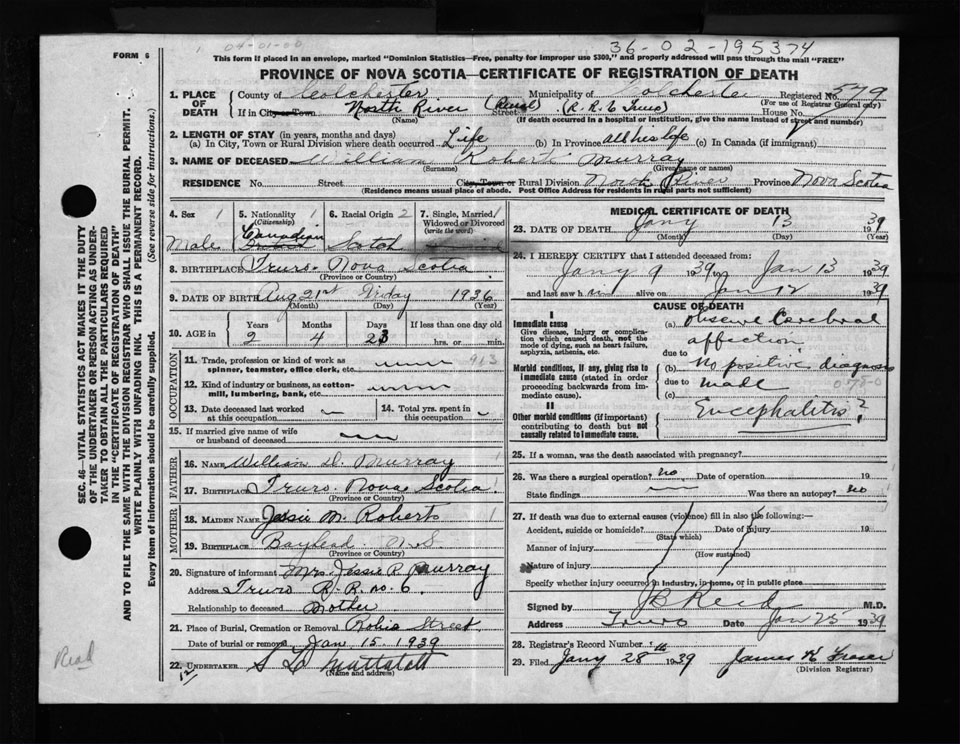 04-01-00
36-02-195374
FORM 6
This form if placed in an envelope, marked "Dominion Statistics—Free, penalty for improper use $300," and properly addressed will pass through the mail "FREE"
PROVINCE OF NOVA SCOTIA—CERTIFICATE OF REGISTRATION OF DEATH
SEC. 46—VITAL STATISTICS ACT MAKES IT THE DUTY
OF THE UNDERTAKER OR PERSON ACTING AS UNDER-
TAKER TO OBTAIN ALL THE PARTICULARS REQUIRED
IN THE "CERTIFICATE OF REGISTRATION OF DEATH"
AND TO FILE THE SAME WITH THE DIVISION REGISTRAR WHO SHALL ISSUE THE BURIAL PERMIT.
WRITE PLAINLY WITH UNFADING INK. THIS IS A PERMANENT RECORD.
Every item of information should be carefully supplied. (See reverse side for instructions.)
1. PLACE OF DEATH County of Colchester Municipality of Colchester Registered No. 579
(For use of Registrar General only)
If in City or Town North River (Rural) Street (R.R.6 Truro) House No.
(Name) (If death occurred in a hospital or institution, give the name instead of street and number)
2. LENGTH OF STAY (in years, months and days)
(a) In City, Town or Rural Division where death occurred Life (b) In Province all his life (c) In Canada (if immigrant)
3. NAME OF DECEASED William Robert Murray
(Surname) (Given name or names)
RESIDENCE No. Street City, Town or Rural Division North River Province Nova Scotia
(Residence means usual place of abode. Post Office Address for residents in rural parts not sufficient)
4. Sex 1 Male
5. Nationality 1 (Citizenship) Canadian
6. Racial Origin 2 Scotch
7. Single, Married, Widowed or Divorced (write the word) 1
8. BIRTHPLACE Truro. Nova Scotia
(Province or Country)
9. DATE OF BIRTH Aug 21st Friday 1936
(Month) (Day) (Year)
10. AGE in Years Months Days If less than one day old
2 4 23 hrs. or min.
OCCUPATION
11. Trade, profession or kind of work as spinner, teamster, office clerk, etc. 913
12. Kind of industry or business, as cotton-mill, lumbering, bank, etc.
13. Date deceased last worked at this occupation
14. Total yrs. spent in this occupation
15. If married give name of wife or husband of deceased
FATHER
16. NAME William D. Murray
17. BIRTHPLACE Truro. Nova Scotia
(Province or Country)
MOTHER
18. MAIDEN NAME Jessie M. Roberts
19. BIRTHPLACE Bayhead N.S.
(Province or Country)
20. Signature of informant Mrs. Jessie R. Murray
Address Truro R.R. no. 6.
Relationship to deceased Mother
21. Place of Burial, Cremation or Removal Robie Street
Date of burial or removal Jan 15, 1939
22. UNDERTAKER S. D. Mattatall
(Name and address)
Read
MEDICAL CERTIFICATE OF DEATH
23. DATE OF DEATH Jany 13 1939
(Month) (Day) (Year)
24. I HEREBY CERTIFY that I attended deceased from:
Jany 9 1939 to Jan 13 1939
and last saw him alive on Jan 12 1939
CAUSE OF DEATH
I
Immediate cause
Give disease, injury or complication which caused death, not the mode of dying, such as heart failure, asphyxia, asthenia, etc.
(a) Obscure Cerebral affection
due to
Morbid conditions, if any, giving rise to immediate cause (stated in order proceeding backwards from immediate cause).
(b) No positive diagnosis
due to made
(c) 078-0
II
Other morbid conditions (if important) contributing to death but not causally related to immediate cause.
Encephalitis?
25. If a woman, was the death associated with pregnancy?
26. Was there a surgical operation? No Date of operation 19
State findings Was there an autopsy? No
27. If death was due to external causes (violence) fill in also the following:—
Accident, suicide or homicide? Date of injury 19
(State which)
Manner of injury
(How sustained)
Nature of injury
Specify whether injury occurred in industry, in home, or in public place
Signed by J B Reid M.D.
Address Truro Date Jan 25 1939
28. Registrar's Record Number
29. Filed Jany 28th 1939 James K. Fraser
(Division Registrar)